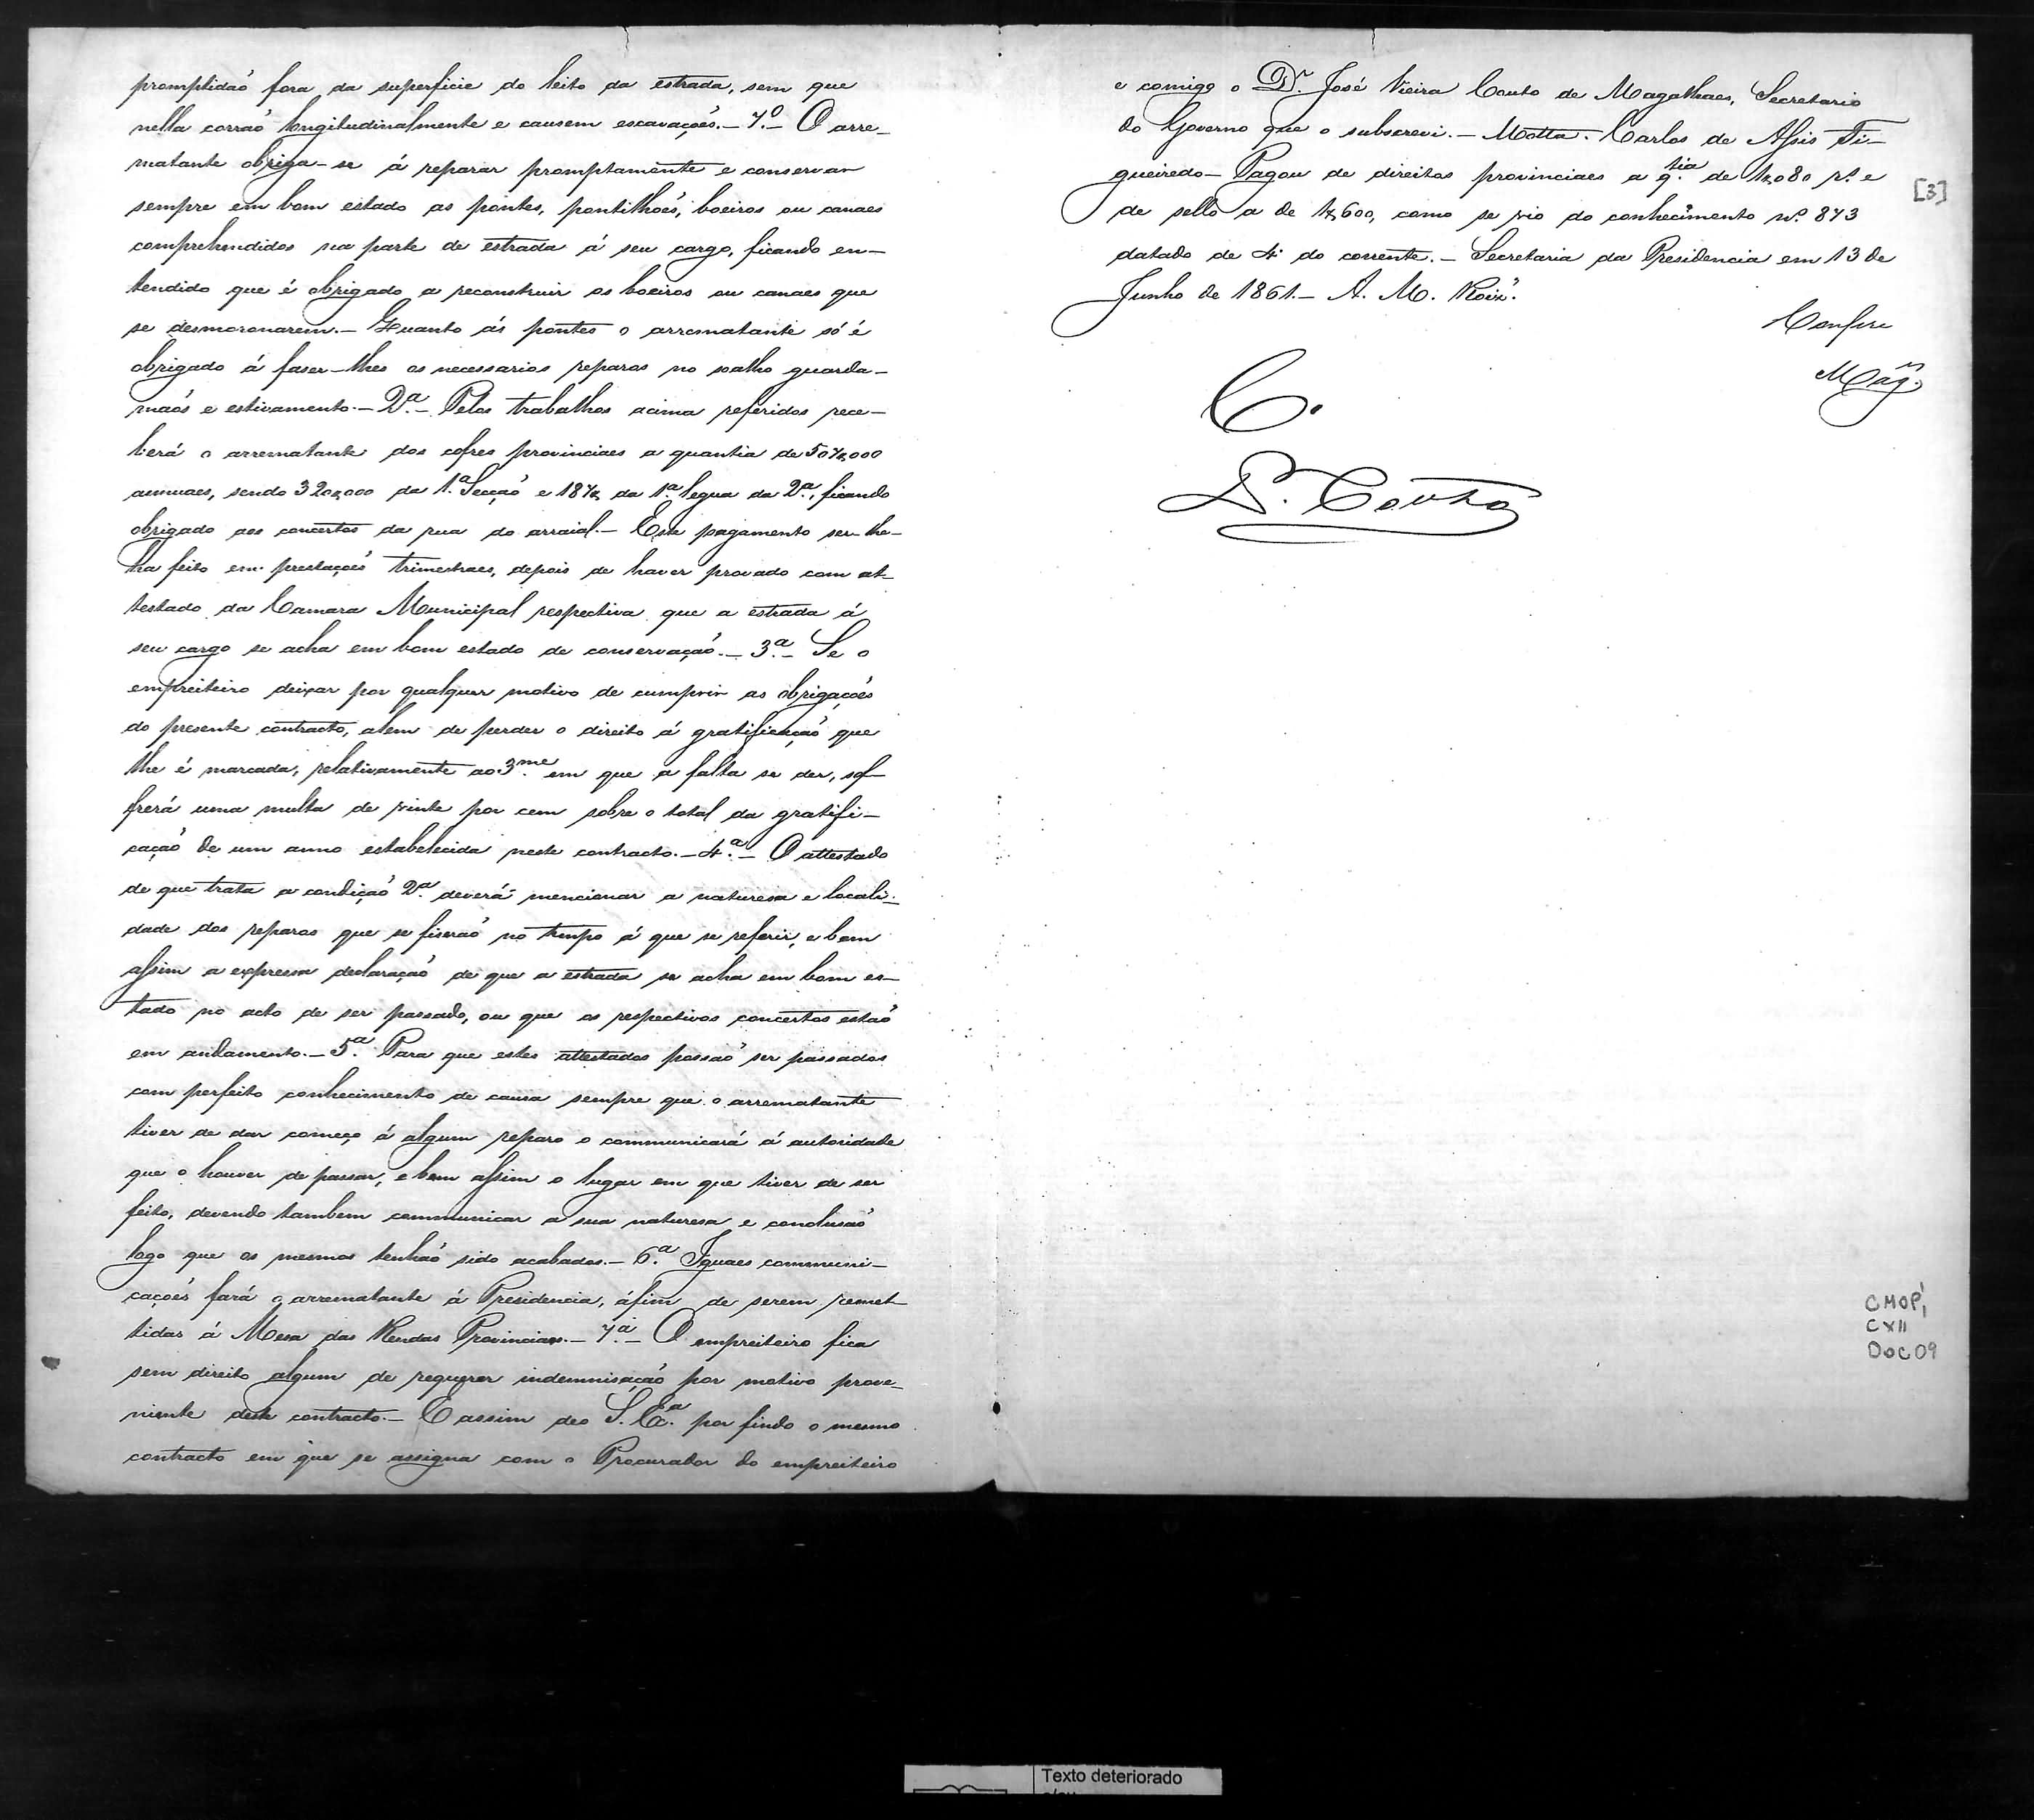 promptidaõ fora da superficie do leito da estrada, sem que
nella corraõ longitudinalmente e causem escavaçoẽs. _ 7.º _ O arre_
matante obriga-se á reparar promptamente e conservar
sempre em bom estado as pontes, pontilhoẽs, boeiros ou canaes
comprehendidos na parte de estrada á seu cargo, ficando en_
tendido que é obrigado a reconstruir os boeiros ou canaes que
se desmoronarem. _ Quanto ás pontes o arrematante só é
obrigado á faser-lhes os necessarios reparos no soalho guarda_
maõs e estivamento. _ 2.ª _ Pelos trabalhos acima referidos rece_
berá o arrematante dos cofres provinciaes a quantia de 507$000
annuaes, sendo 320$000 da 1.ª Secçaõ e 187$ da 1.ª legua da 2.ª, ficando
obrigado aos concertos da rua do arraial. _ Este pagamento ser-lhe_
ha feito em prestaçoẽs trimestraes, depois de haver provado com at_
testado da Camara Municipal respectiva que a estrada á
seu cargo se acha em bom estado de conservaçaõ. _ 3.ª _ Se o
empreiteiro deixar por qualquer motivo de cumprir as obrigaçoẽs
do presente contracto, alem de perder o direito á gratificaçaõ que
lhe é marcada, relativamente ao 3.me em que a falta se der, sof_
frerá uma multa de vinte por cem sobre o total da gratifi_
caçaõ de um anno estabelecida neste contracto. _ 4.ª _ O attestado
de que trata a condiçaõ 2.ª deverá mencionar a naturesa e locali_
dade dos reparos que se fiseraõ no tempo á que se referir, e bem
assim a expressa declaraçaõ de que a estrada se acha em bom es_
tado no acto de ser passado, ou que os respectivos concertos estaõ
em andamento. _ 5.ª Para que estes attestados possaõ ser passados
com perfeito conhecimento de causa sempre que o arrematante
tiver de dar começo á algum reparo o communicará á autoridade
que o houver de passar, e bem assim o lugar em que tiver de ser
feito, devendo tambem communicar a sua naturesa e conclusaõ
logo que os mesmos tenhaõ sido acabados. _ 6.ª Iguaes communi_
caçoẽs fará o arrematante á Presidencia, áfim de serem remet_
tidas á Mesa das Rendas Provinciaes. _ 7.ª _ O empreiteiro fica
sem direito algum de requerer indemnisaçaõ por motivo prove_
niente deste contracto. _ E assim deo S. Ex.ª por findo o mesmo
contracto em que se assigna com o Procurador do empreiteiro
e comigo o Dr. José Vieira Couto de Magalhaes, Secretario
do Governo que o subscrevi. _ Motta. Carlos de Assis Fi_
gueiredo _ Pagou de direitos provinciaes a q.tia de 1$080 rs. e
[3]
de sello a de 1$600, como se vio do conhecimento nº. 873
datado de 4 do corrente. _ Secretaria da Presidencia em 13 de
Junho de 1861. _ A. M. Roiz.
Confere
Mag.
C.
CMOP,
CXII
Doc 09
Texto deteriorado